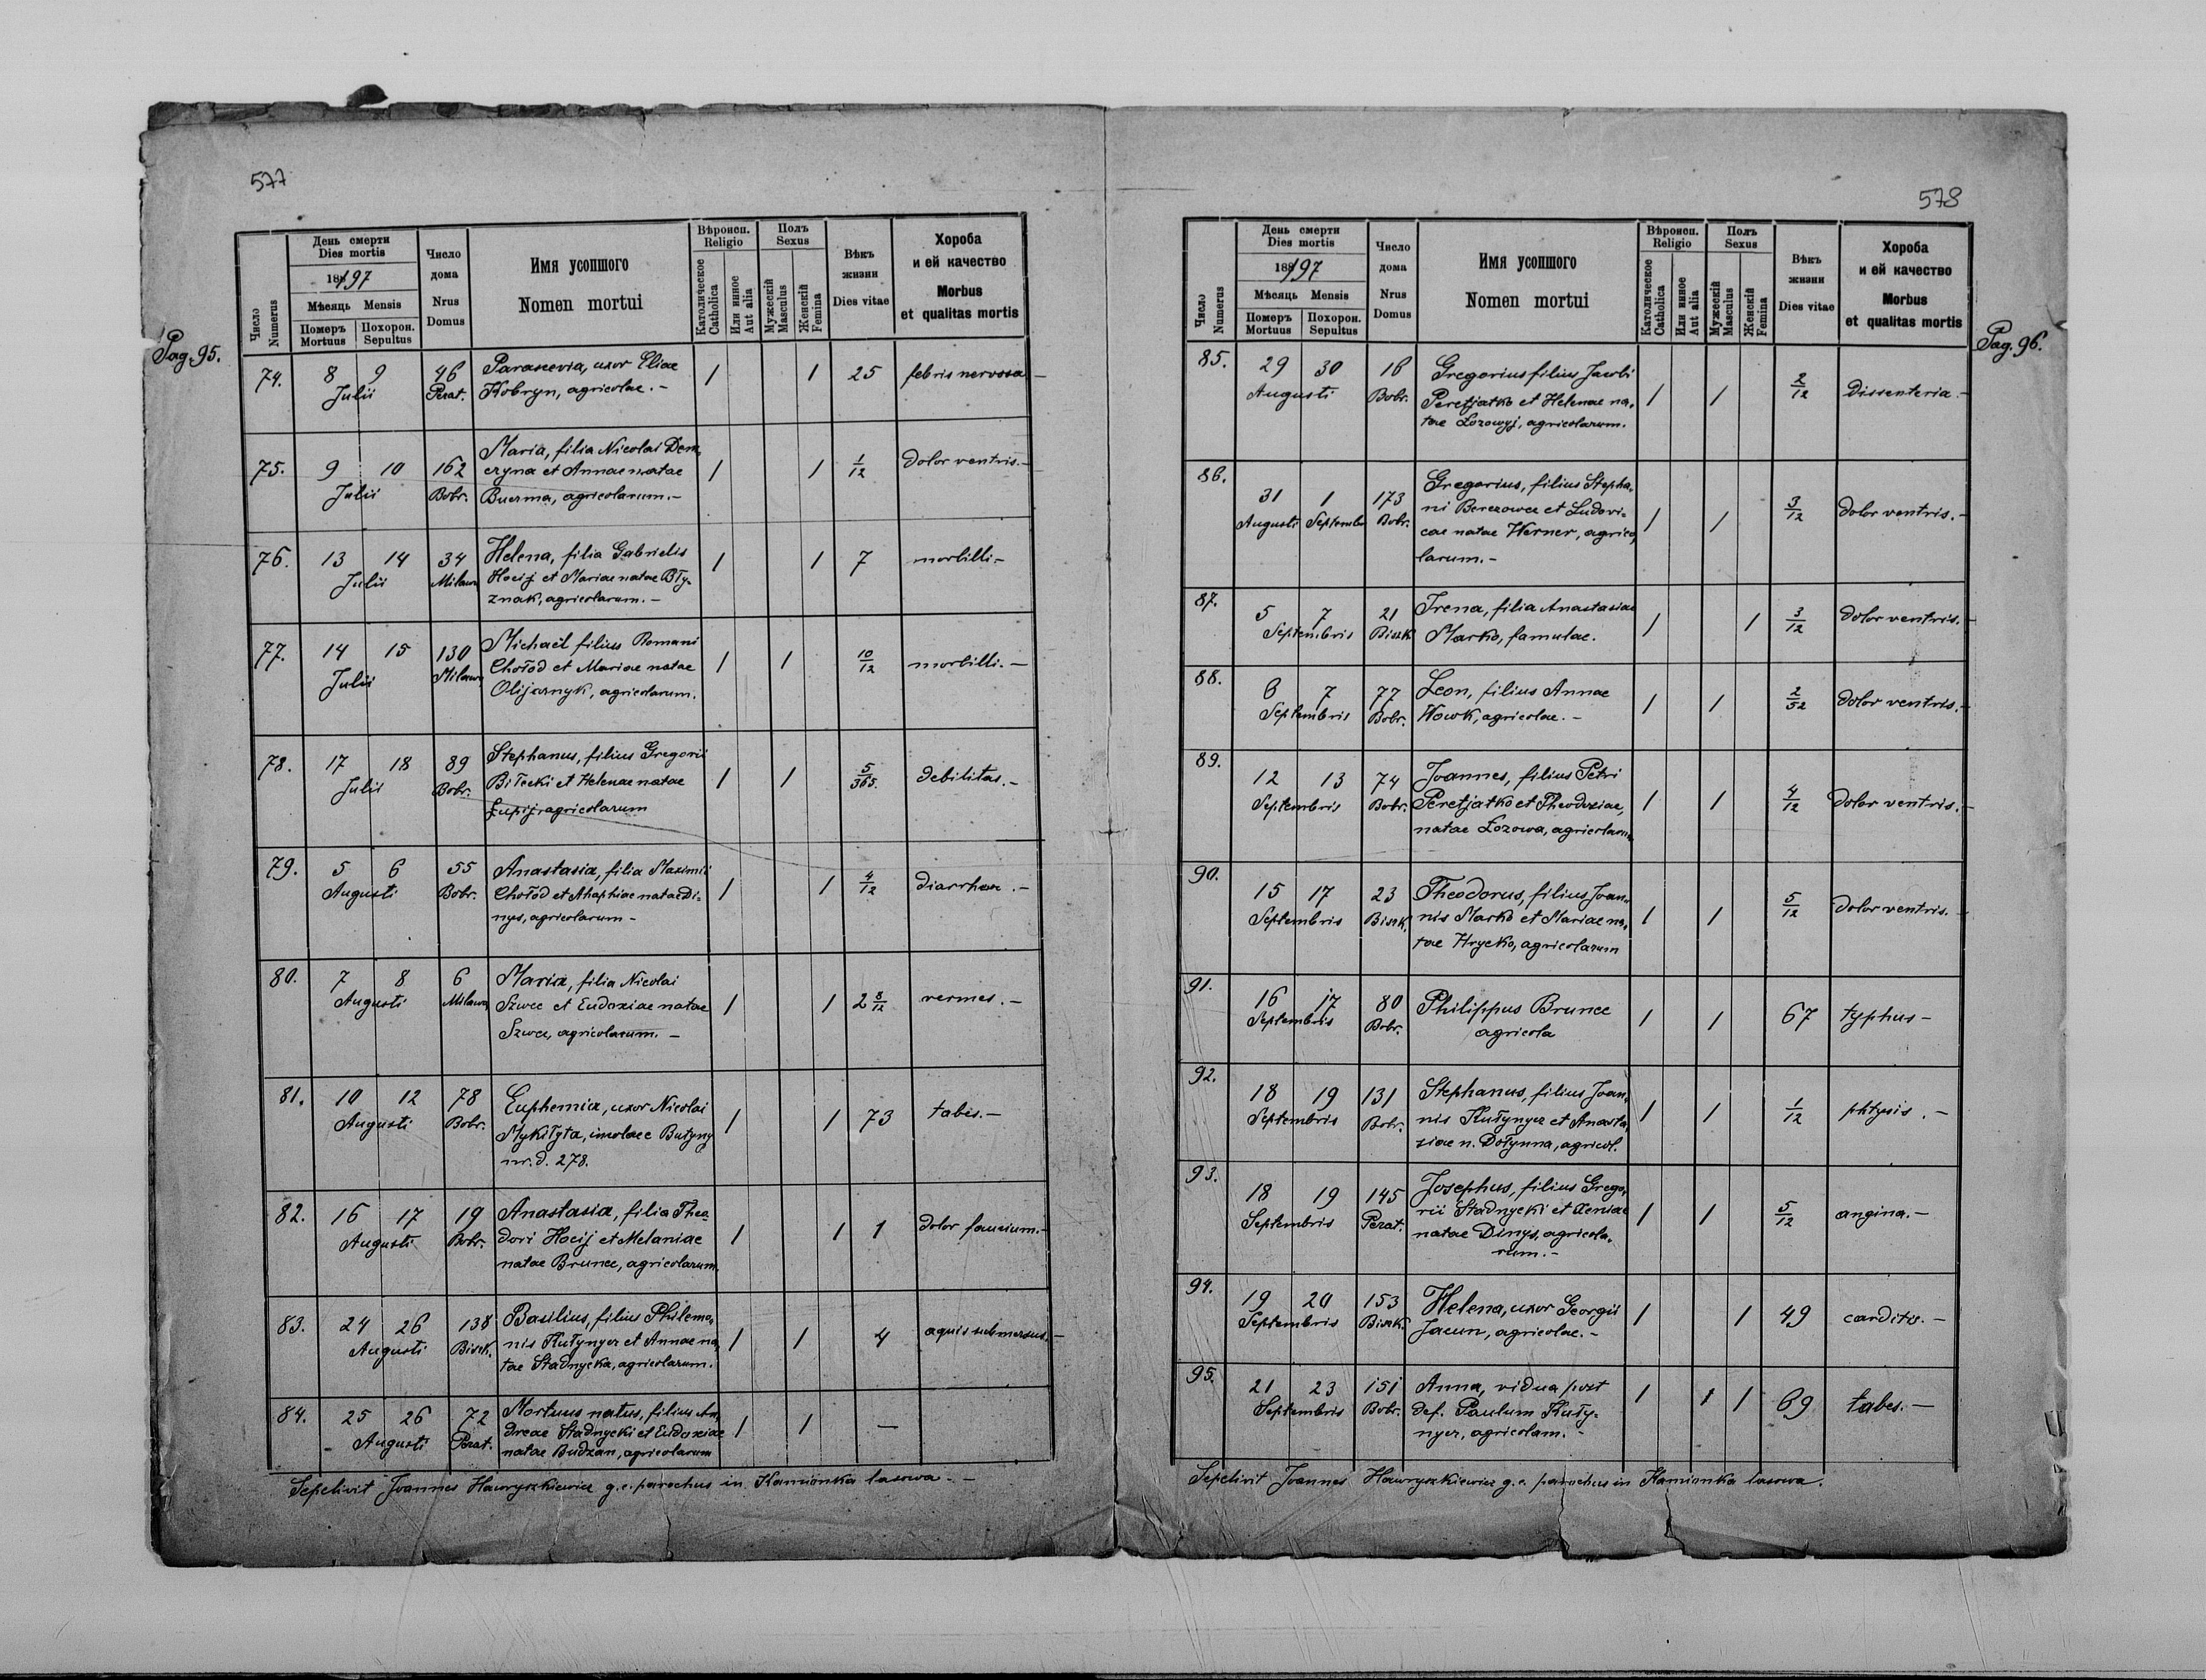 577
Pag. 95.
Число
Numerus
День смерти
Dies mortis
1897
Мѣсяць Mensis
Померъ
Mortuus
Похорон.
Sepultus
Число
дома
Nrus
Domus
Имя усопшого
Nomen mortui
Вѣроисп.
Religio
Католическое
Catholica
Или инное
Aut alia
Полъ
Sexus
Мужескій
Masculus
Женскій
Femina
Вѣкъ
жизни
Dies vitae
Хороба
и ей качество
Morbus
et qualitas mortis
74. 8 9 Julii 46 Perat. Parascevia, uxor Eliae
Kobryn, agricolae. – 1 1 25 febris nervosa –
75. 9 10 Julii 162 Bobr. Maria, filia Nicolai Dem,
czyna et Annae natae
Buczma, agricolarum. – 1 1 1/12 dolor ventris. –
76. 13 14 Julii 34 Milawa Helena, filia Gabrielis
Hocij et Mariae natae Bły-
znak, agricolarum. – 1 1 7 morbilli –
77. 14 15 Julii 130 Milawa Michaël filius Romani
Chołod et Mariae natae
Olijarnyk, agricolarum. 1 1 10/12 morbilli. –
78. 17 18 Julii 89 Bobr. Stephanus, filius Gregorii
Biłecki et Helenae natae
Łupij, agricolarum 1 1 5/365. debilitas. –
79. 5 6 Augusti 55 Bobr. Anastasia, filia Maximi
Chołod et Ahaphiae natae Di-
nys, agricolarum – 1 1 4/12 diarrhoe . –
80. 7 8 Augusti 6 Milawa Maria, filia Nicolai
Szwec et Eudoxiae natae
Szwec, agricolarum. – 1 1 2 8/12 vermes. –
81. 10 12 Augusti 78 Bobr. Euphemia, uxor Nicolai
Mykiłyta, incolae e Butyny
nr. d. 278. 1 1 73 tabes. –
82. 16 17 Augusti 19 Bobr. Anastasia, filia Theo-
dori Hocij et Melaniae
natae Brunec, agricolarum. 1 1 1 dolor faucium. –
83. 24 26 Augusti 138 Bisck. Basilius, filius Philemo,
nis Kułynycz et Annae na,
tae Stadnycka, agricolarum. 1 1 4 aquis submersus. –
84. 25 26 Augusti 72 Perat. Mortuus natus, filius An,
dreae Stadnycki et Eudoxiae
natae Budzan, agricolarum 1 1 –
Sepelivit Joannes Hawryszkiewicz g. c. parochus in Kamionka lasowa. –
578
Pag. 96.
Число
Numerus
День смерти
Dies mortis
1897
Мѣсяць Mensis
Померъ
Mortuus
Похорон.
Sepultus
Число
дома
Nrus
Domus
Имя усопшого
Nomen mortui
Вѣроисп.
Religio
Католическое
Catholica
Или инное
Aut alia
Полъ
Sexus
Мужескій
Masculus
Женскій
Femina
Вѣкъ
жизни
Dies vitae
Хороба
и ей качество
Morbus
et qualitas mortis
85. 29 30 Augusti 16 Bobr. Gregorius filius Jacobi
Peretjatko et Helenae na,
tae Łozowyj, agricolarum. 1 1 2/12 Dissenteria. –
86. 31 Augusti 1 Septembr 173 Bobr. Gregorius, filius Stepha,
ni Berezowec et Ludovi-
cae natae Werner, agrico,
larum. – 1 1 3/12 dolor ventris. –
87. 5 7 Septembris 21 Bisck Irena, filia Anastasiae
Marko, famulae. 1 1 3/12 dolor ventris. –
88. 6 7 Septembris 77 Bobr. Leon, filius Annae
Wowk, agricolae. – 1 1 2/52 dolor ventris. –
89. 12 13 Septembris 74 Bobr. Joannes, filius Petri
Peretjatko et Theodoziae,
natae Łozowa, agricolarum 1 1 4/12 dolor ventris. –
90. 15 17 Septembris 23 Bisck. Theodorus, filius Joan,
nis Marko et Mariae na,
tae Hrycko, agricolarum 1 1 5/12 dolor ventris. –
91. 16 17 Septembris 80 Bobr. Philippus Brunec
agricola 1 1 67 typhus –
92. 18 19 Septembris 131 Bobr. Stephanus, filius Joan,
nis Kułynycz et Anasta,
siae n. Dołynna, agricol. 1 1 1/12 phtysis . –
93. 18 19 Septembris 145 Perat. Josephus, filius Grego,
rii Stadnycki et Xeniae
natae Dinys, agricola,
rum. – 1 1 5/12 angina. –
94. 19 20 Septembris 153 Bisck. Helena, uxor Georgii
Jacun, agricolae. – 1 1 49 carditis. –
95. 21 23 Septembris 151 Bobr. Anna, vidua post
def. Paulum Kuły-
nycz, agricolam. – 1 1 1 69 tabes. –
Sepelivit Joannes Hawryszkiewicz g. c. parochus in Kamionka lasowa.